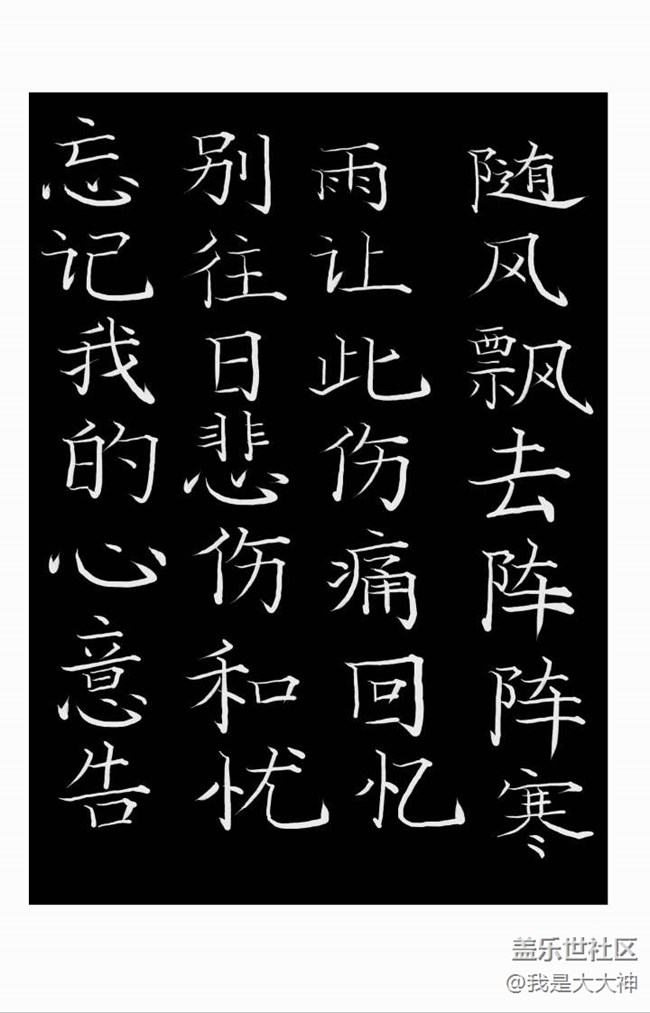 随风飘去阵阵寒
雨让此伤痛回忆
别往日悲伤和忧
忘记我的心意告
盖乐世社区
@我是大大神